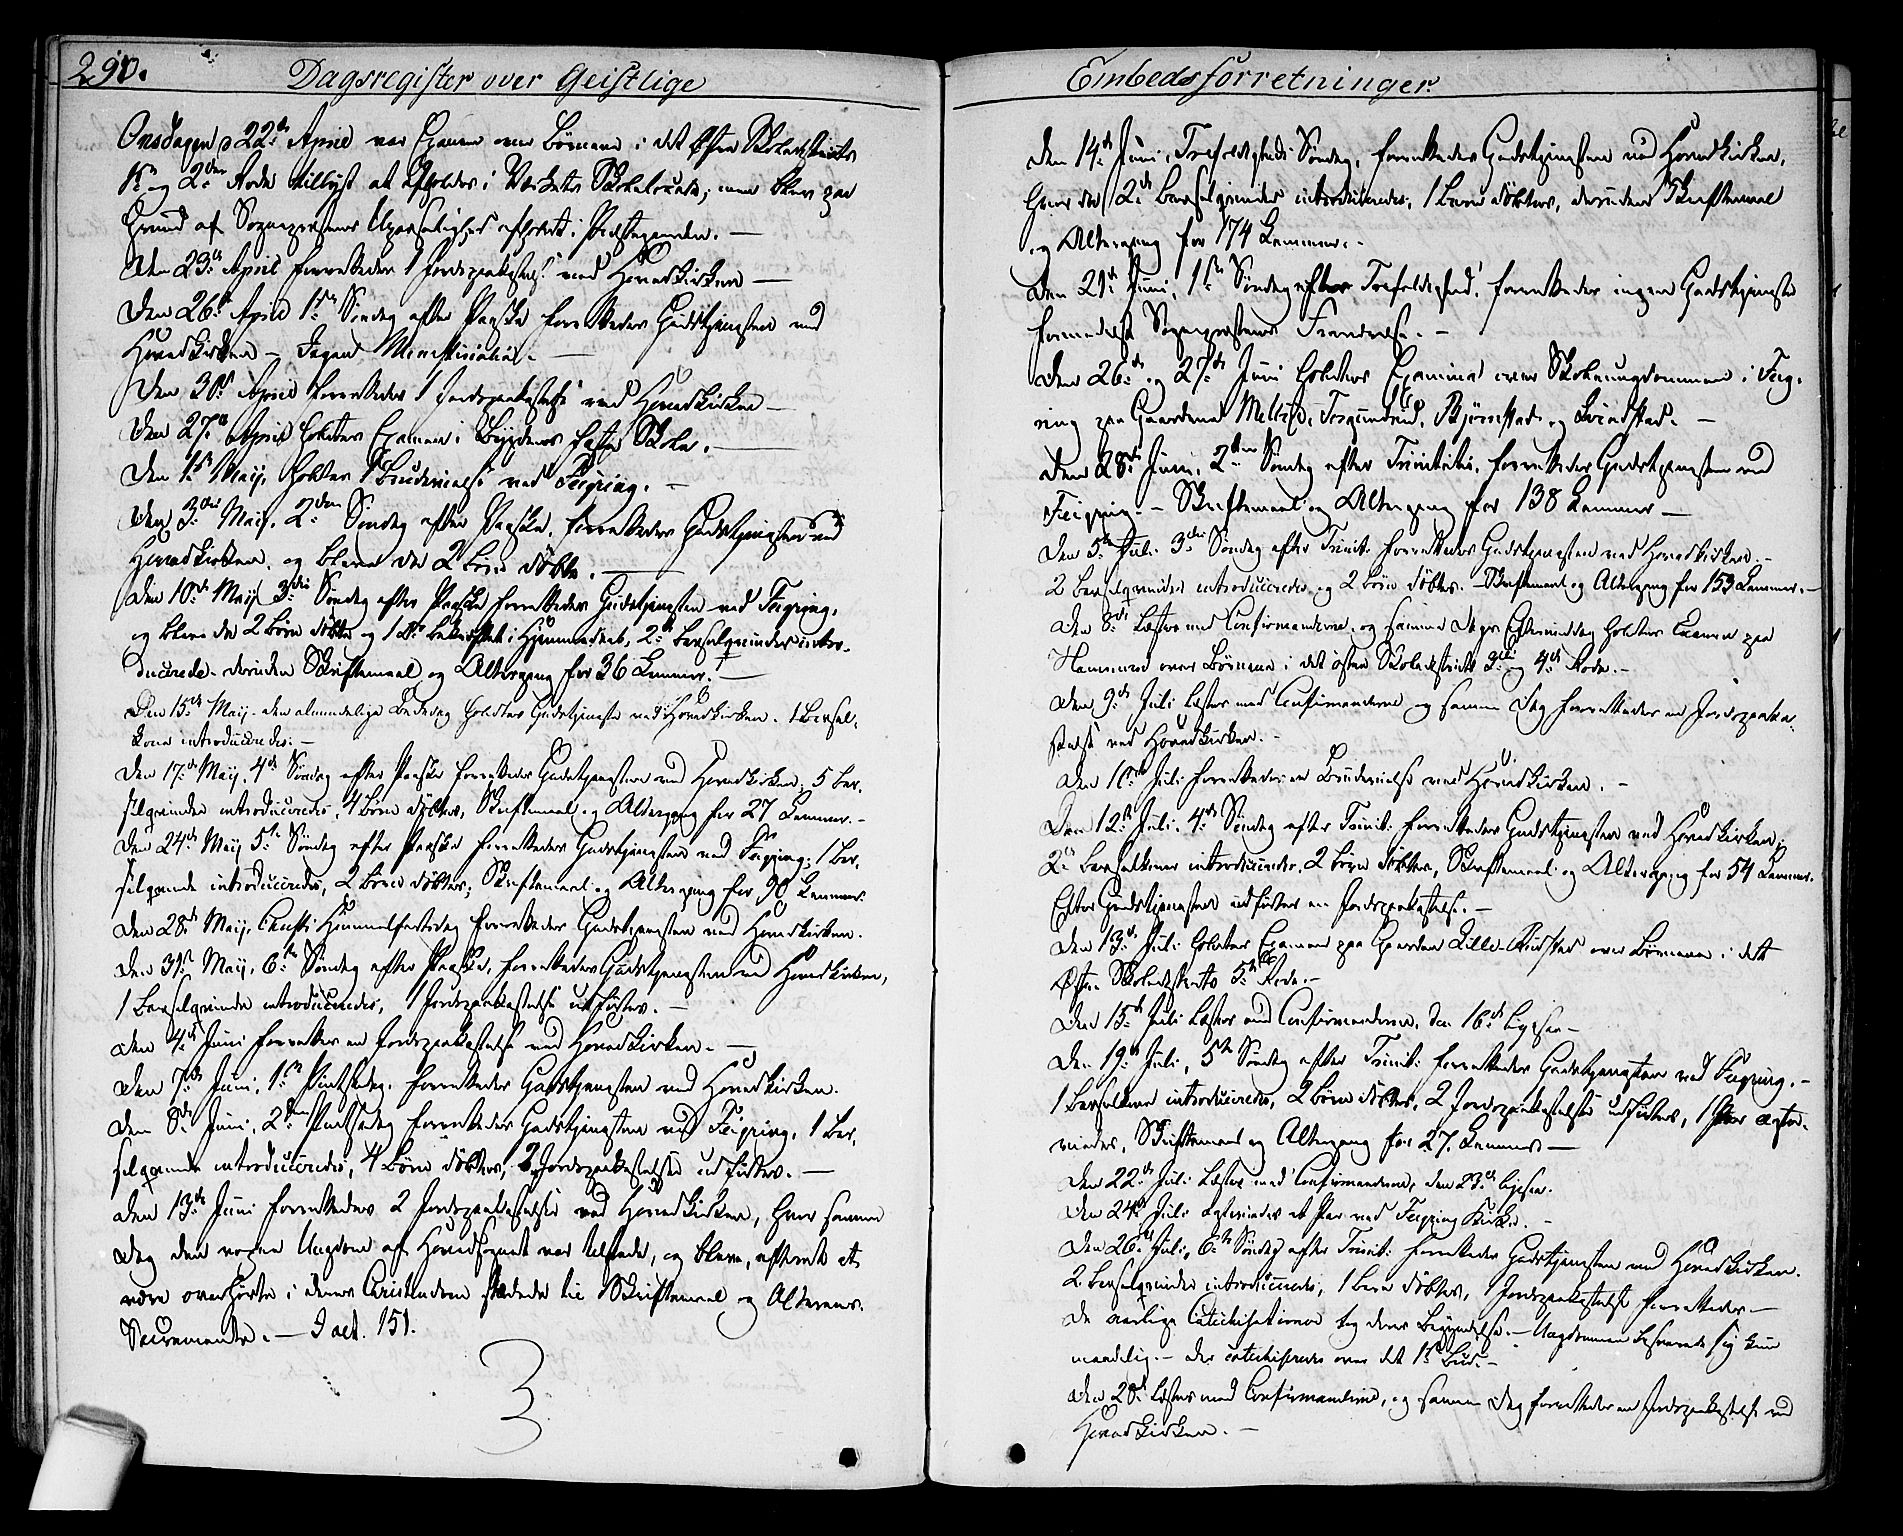 290.
Dagsregister over Geistlige
Onsdagen d 22de April var Examen over Børnene i det Østre Skoledistricts
1ste og 2den Rode tillyst at afholdes i Værkets Skolelocale; men blev paa
Grund af Sognepræstens Upasselighed afholdt i Præstegaarden. —
Den 23de April forrettedes 1 Jordspaakastelse ved Hovedkirken —
Den 26de April 1ste Søndag efter Paaske forrettedes Gudstjenesten ved
Hovedkirken — Ingen Ministerialia. —
Den 30te April forrettedes 1 Jordspaakastelse ved Hovedkirken —
Den 27de April holdtes Examen i Bygdens faste Skole. —
Den 1ste Maij, holdtes 1 Brudevielse ved Feiring. —
Den 3die Maij, 2den Søndag efter Paaske, forrettedes Gudstjenesten ved
Hovedkirken, og bleve der 2 Børn døbte. —
Den 10de Maij 3die Søndag efter Paaske forrettedes Gudstjenesten ved Feiring,
og bleve der 2 Børn døbte og 1 do bekræftet i Hjemmedaab, 2de Barselqvinder intro-
ducerede. desuden Skriftemaal og Altergang for 36 Lemmer. —
Den 15de Maij. den almindelige Bededag holdtes Gudstjeneste ved Hovedkirken. 1 Barsel-
kone introduceredes. —
Den 17de Maij, 4de Søndag efter Paaske forrettedes Gudstjenesten ved Hovedkirken; 5 Bar-
selqvinder introduceredes, 4 Børn døbtes, Skriftemaal og Altergang for 27 Lemmer. —
Den 24de Maij 5te Søndag efter Paaske forrettedes Gudstjenesten ved Feiring; 1 Bar-
selqvinde introduceredes, 2 Børn døbtes; Skriftemaal og Altergang for 90 Lemmer.
Den 28de Maij, Christi Himmelfartsdag forrettedes Gudstjenesten ved Hovedkirken.
Den 31te Maij, 6te Søndag efter Paaske, forrettedes Gudstjenesten ved Hovedkirken,
1 Barselqvinde introduceredes, 1 Jordspaakastelse udførtes. —
Den 4de Juni forrettedes en Jordspaakastelse ved Hovedkirken. —
Den 7de Juni, 1ste Pintsedag, forrettedes Gudstjenesten ved Hovedkirken.
Den 8de Juni, 2den Pintsedag forrettedes Gudstjenesten ved Feiring, 1 Bar-
selqvinde introduceredes, 4 Børn døbtes, 2 Jordspaakastelser udførtes. —
Den 13de Juni forrettedes 2 Jordspaakastelser ved Hovedkirken, hvor samme
Dag den Ungdom af Hovedsognet var tilstede, og bleve, efterat at
være overhørte i deres Christendom stededes til Skriftemaal og Alterens
Sacramente. — I alt. 151.
3
Embedsforretninger.
Den 14de Juni, Trefoldigheds Søndag, forrettedes Gudstjenesten ved Hovedkirken,
hvor der 2de Barselqvinder introduceredes, 1 Barn døbtes, desuden Skriftemaal
og Altergang for 174 Lemmer. —
Den 21de Juni, 1ste Søndag efter Trefoldighed, forrettedes ingen Gudstjeneste
formedelst Sognepræstens Fraværelse. —
Den 26de og 27de Juni holdtes Examina over Skoleungdommen i Fei-
ring paa Gaardene Torgundrud, Bjørnstad og —
Den 28de Juni, 2den Søndag efter Trinitatis, forrettedes Gudstjenesten ved
Feiring. — Skriftemaal og Altergang for 138 Lemmer —
Den 5te Juli 3die Søndag efter Trinit. forrettedes Gudstjenesten ved Hovedkirken. —
2 Barselqvinder introduceredes og 2 Børn døbtes. — Skriftemaal og Altergang for 153 Lemmer. —
Den 8de læstes med Confirmanderne, og samme Dags Eftermiddag holdtes Examen paa
over Børnene i det østre Skoledistricts 3die og 4de Rode. —
Den 9de Juli læstes med Confirmanderne og samme Dag forrettedes en Jordspaaka-
stelse ved Hovedkirken. —
Den 10de Juli forrettedes en Brudevielse ved Hovedkirken. —
Den 12te Juli, 4de Søndag efter Trinit. forrettedes Gudstjenesten ved Hovedkirken;
2de Barselkoner introduceredes, 2 Børn døbtes, Skriftemaal og Altergang for 54 Lemmer.
Efter Gudstjenesten udførtes en Jordspaakastelse. —
Den 13de Juli holdtes Examen paa Gaarden Lille- over Børnene i det
Østre Skoledistricts 5te Rode. —
Den 15de Juli læstes med Confirmanderne, den 16de ligesaa —
Den 19de Juli, 5te Søndag efter Trinit. forrettedes Gudstjenesten ved Feiring. —
1 Barselkone introduceredes, 2 Børn døbtes, 2 Jordspaakastelser udførtes, 1 Par ægte-
viedes, Skriftemaal og Altergang for 27. Lemmer —
Den 22de Juli læstes med Confirmanderne, den 23de ligesaa.
Den 24de Juli ægteviedes et Par ved Feiring Kirke. —
Den 26de Juli, 6te Søndag efter Trinit. forrettedes Gudstjenesten ved Hovedkirken.
2 Barselqvinder introduceredes, 1 Barn døbtes, 1 Jordspaakastelse forrettedes —
De aarlige Catechisationer tog deres Begyndelse. — Ungdommen besvarede sig kun
maadelig. — Der catechiseredes over det 1ste Bud. —
Den 28de læstes med Confirmanderne, og samme Dag forrettedes en Jordspaakastelse ved
Hovedkirken. —